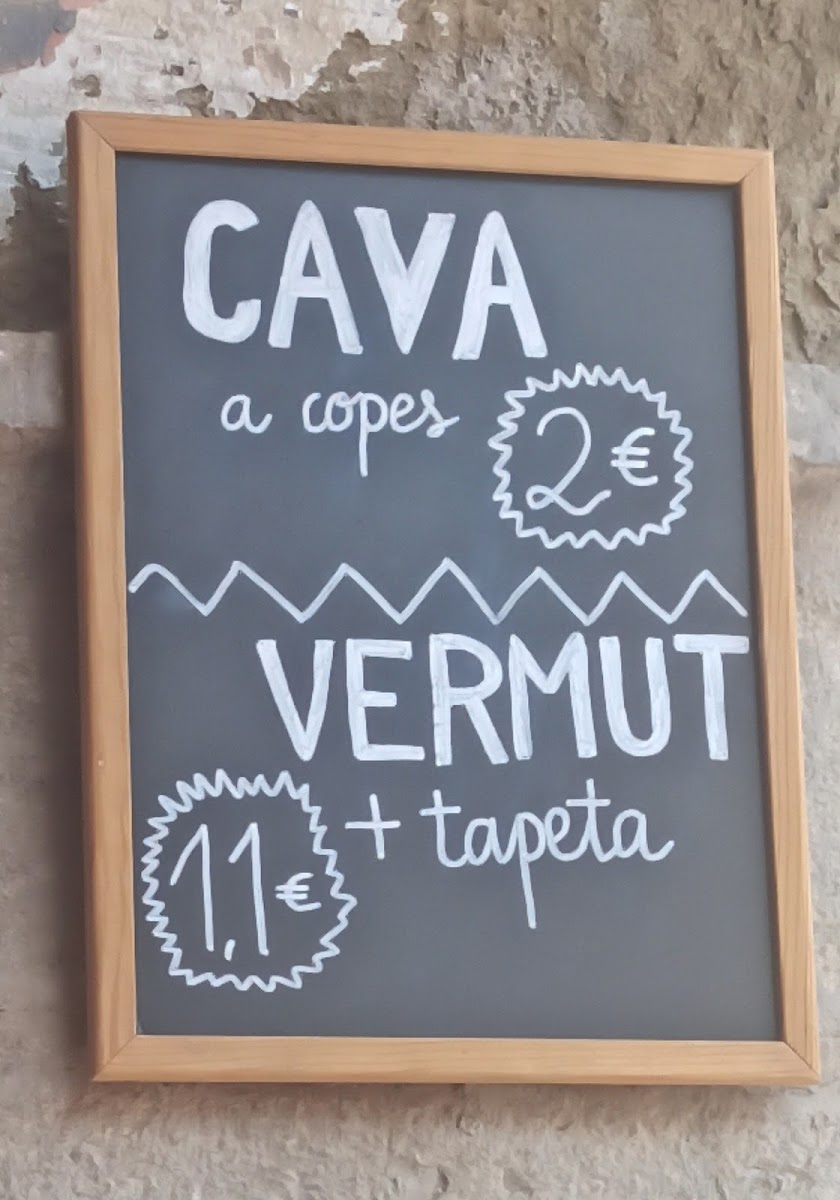 CAVA
a copes
2€
VERMUT
+ tapeta
1,1€